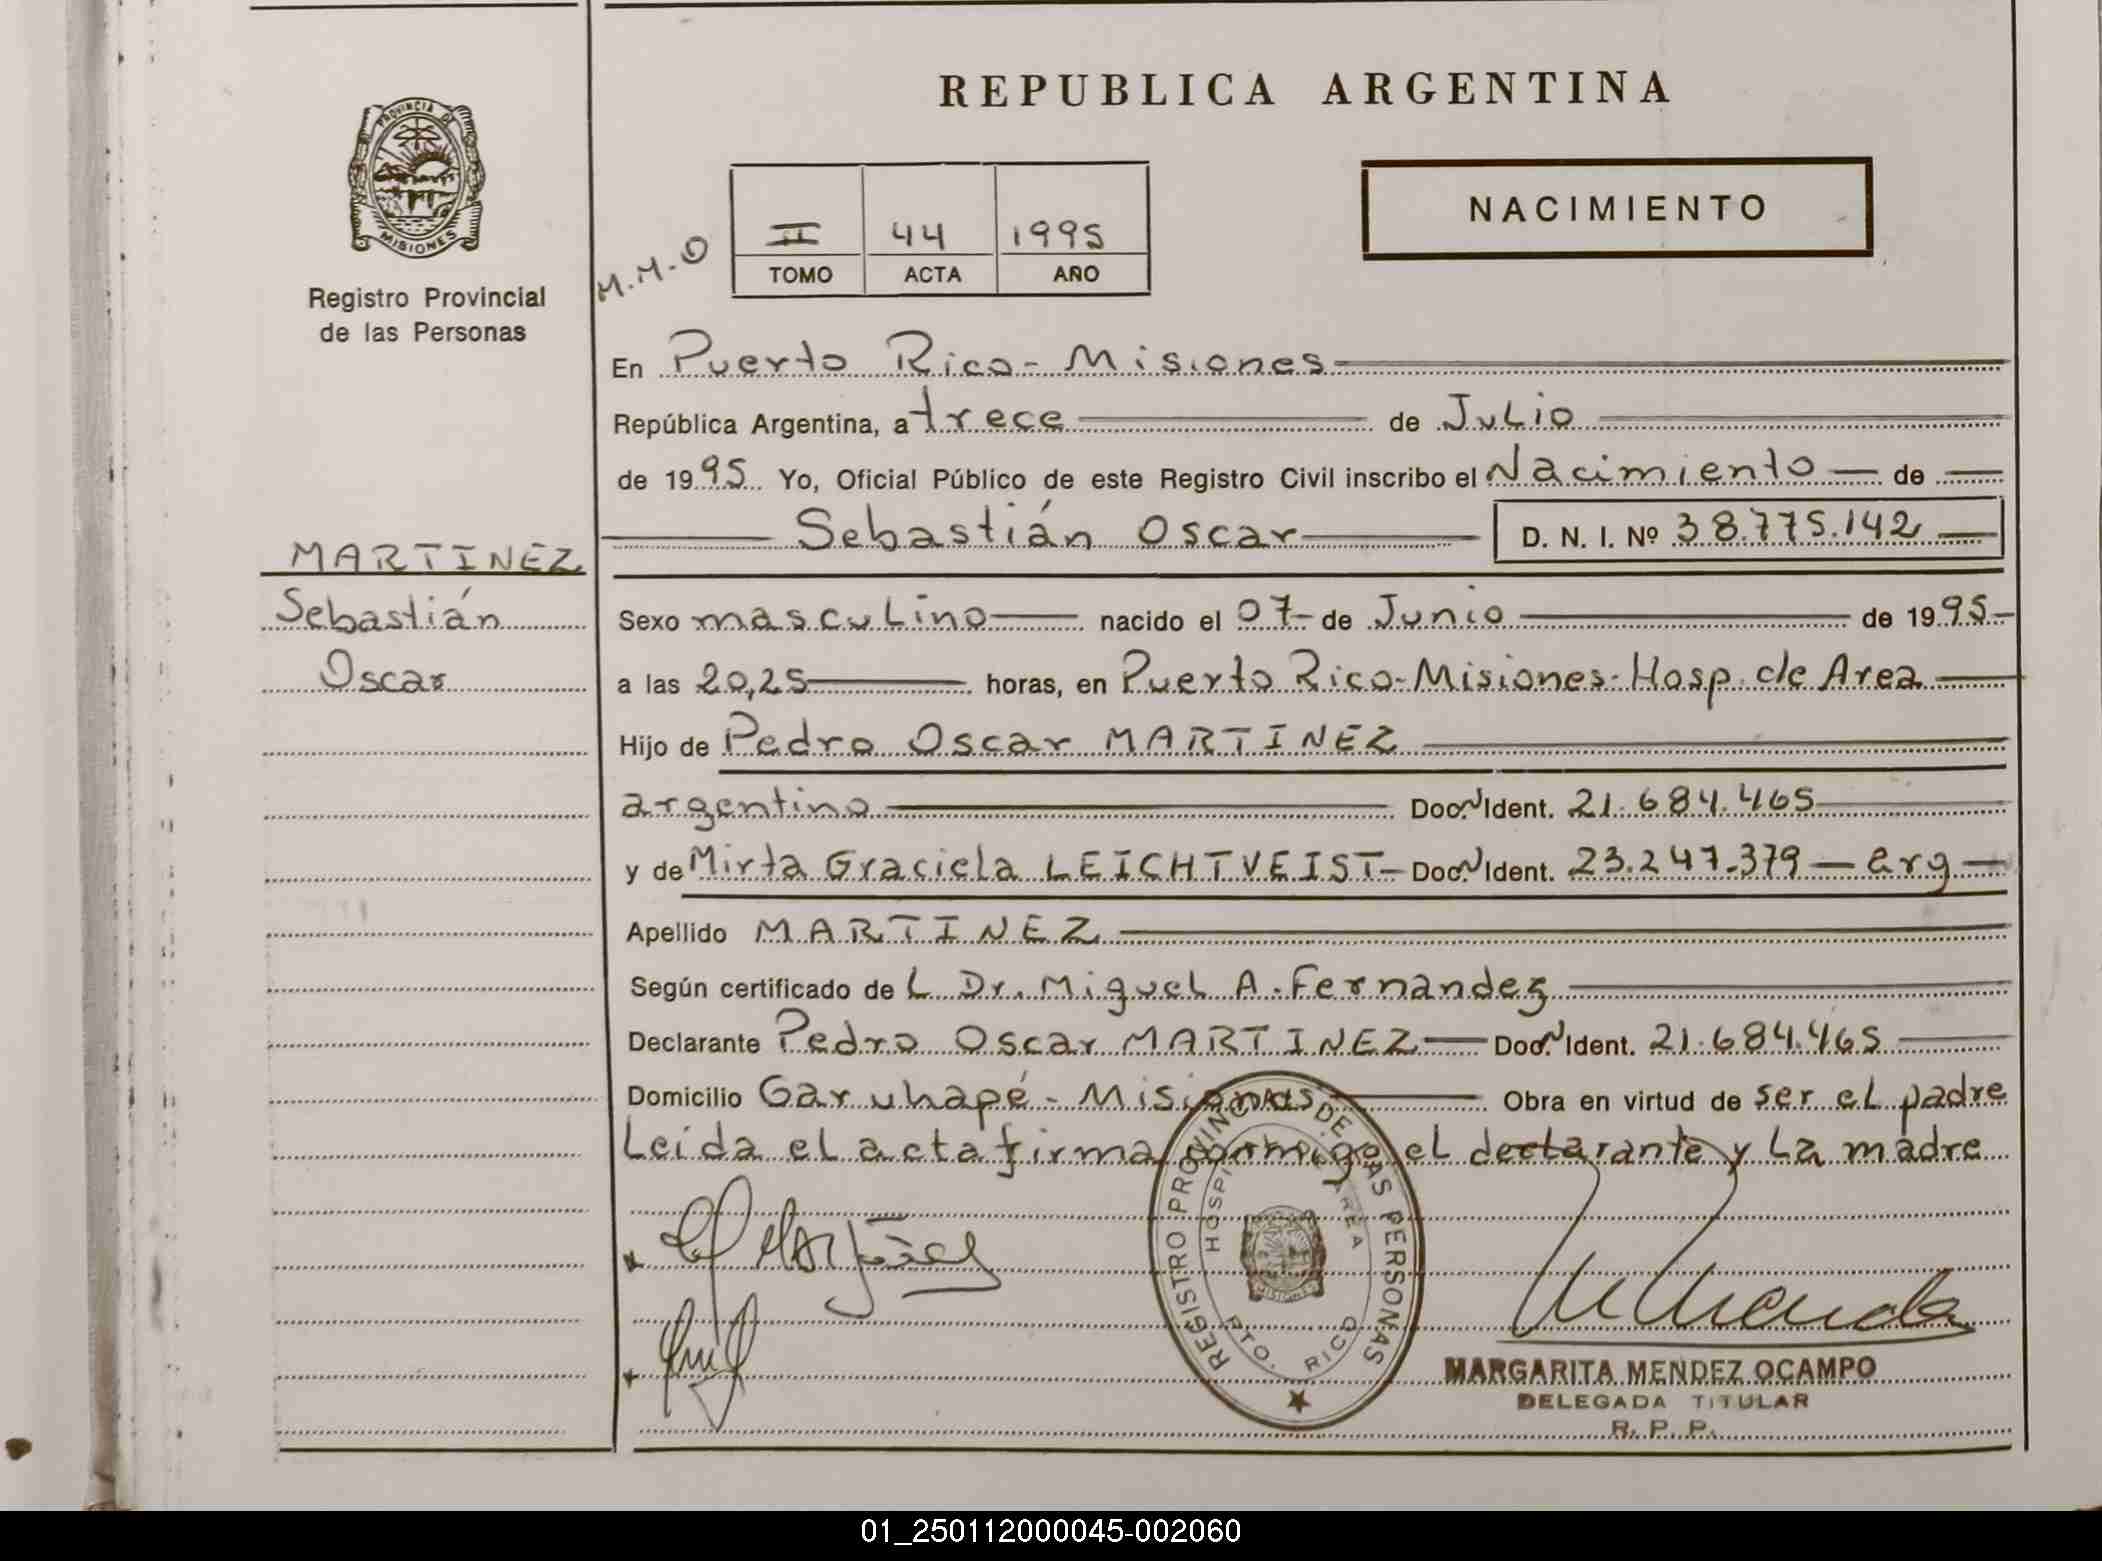 REPUBLICA ARGENTINA
PROVINCIA DE MISIONES
Registro Provincial
de las Personas
NACIMIENTO
M.M.O
II 44 1995
TOMO ACTA AÑO
En Puerto Rico - Misiones
República Argentina, a trece de Julio
de 1995 Yo, Oficial Público de este Registro Civil inscribo el Nacimiento de
Sebastián Oscar D. N. I. Nº 38.775.142
MARTINEZ
Sebastián
Oscar
Sexo masculino nacido el 07 de Junio de 1995
a las 20,25 horas, en Puerto Rico-Misiones-Hosp. de Area
Hijo de Pedro Oscar MARTINEZ
argentino Doc. N Ident. 21.684.465
y de Mirta Graciela LEICHTVEIST - Doc. N Ident. 23.247.379 - arg
Apellido MARTINEZ
Según certificado de L Dr. Miguel A. Fernandez
Declarante Pedro Oscar MARTINEZ Doc. N Ident. 21.684.465
Domicilio Garuhapé - Misiones Obra en virtud de ser el padre
Leida el acta firma conmigo el declarante y La madre
REGISTRO PROVINCIAL DE LAS PERSONAS
HOSPITAL DE AREA
PTO. RICO
MARGARITA MENDEZ OCAMPO
DELEGADA TITULAR
R. P. P.
01_250112000045-002060